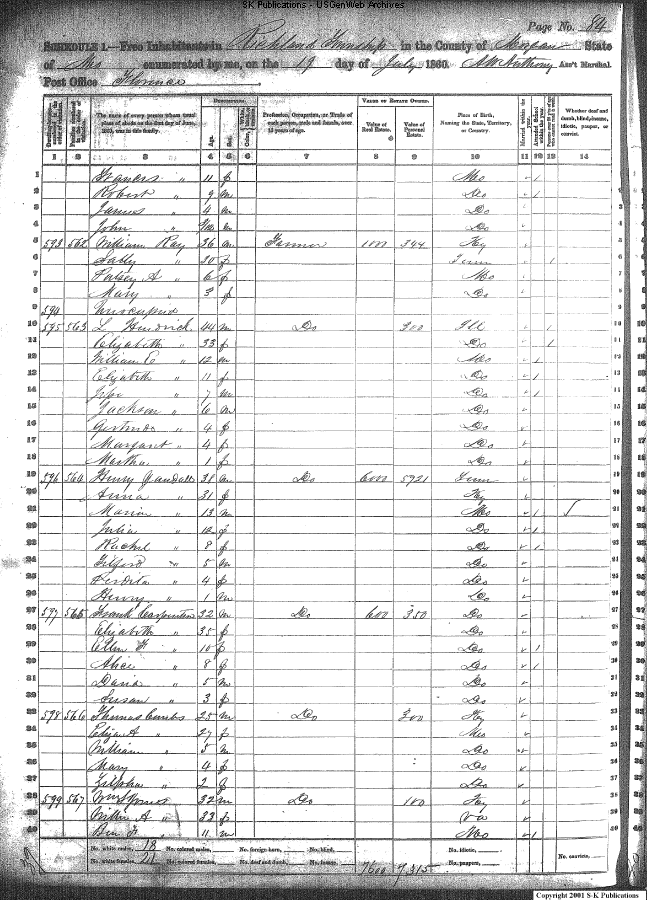 SK Publications - USGenWeb Archives
Page No. 84
SCHEDULE 1.—Free Inhabitants in Richland Township in the County of Morgan State
of Mo enumerated by me, on the 19 day of July 1860. Ass't Marshal.
Post Office Florence
DESCRIPTION. VALUE OF ESTATE OWNED.
The name of every person whose usual place of abode on the first day of June, 1860, was in this family.
Age. Sex.
Profession, Occupation, or Trade of each person, male and female, over 15 years of age.
Value of Real Estate. Value of Personal Estate.
Place of Birth, Naming the State, Territory, or Country.
Married within the year. Attended School within the year.
Whether deaf and dumb, blind, insane, idiotic, pauper, or convict.
1 2 3 4 5 6 7 8 9 10 11 12 13 14
1 Frances " 11 f Mo
2 Robert " 9 m Do
3 James " 4 m Do
4 John " m Do
5 593 562 William Ray 36 m Farmer 1000 344 Ky
6 Sally " 30 f Tenn
7 Patsey A " 6 f Mo
8 Mary " 3 f Do
9 594 Unoccupied
10 595 563 L Hendrick 44 m Do 300 Ill
11 Elizabeth " 33 f Do
12 William C " 12 m Mo
13 Elizabeth " 11 f Do
14 " 7 m Do
15 Jackson " 6 m Do
16 Gertrude " 4 f Do
17 Margaret " 4 f Do
18 Martha " 1 f Do
19 596 564 Henry 31 m Do 6000 5921 Tenn
20 Anna " 31 f Ky
21 Marion " 13 m Mo
22 Julia " 12 f Do
23 Rachel " 8 f Do
24 Tilford " 5 m Do
25 " 4 f Do
26 Henry " 1 m Do
27 597 565 Frank Carpenter 32 m Do 600 350 Do
28 Elizabeth " 35 f Do
29 Ellen F " 10 f Do
30 Alice " 8 f Do
31 David " 5 m Do
32 Susan " 3 f Do
33 598 566 Thomas Combs 25 m Do 300 Ky
34 Eliza A " 27 f Mo
35 William " 5 m Do
36 Mary " 4 f Do
37 Zilpha " 2 f Do
38 599 567 Wm 32 m Do 100 Ky
39 A " 33 f Va
40 Ben F " 11 m Mo
No. white males, 18 No. colored males, No. foreign born, No. blind, No. idiotic, No. convicts,
No. white females, 21 No. colored females, No. deaf and dumb, No. insane, 7600 7,315 No. paupers,
Copyright 2001 S-K Publications